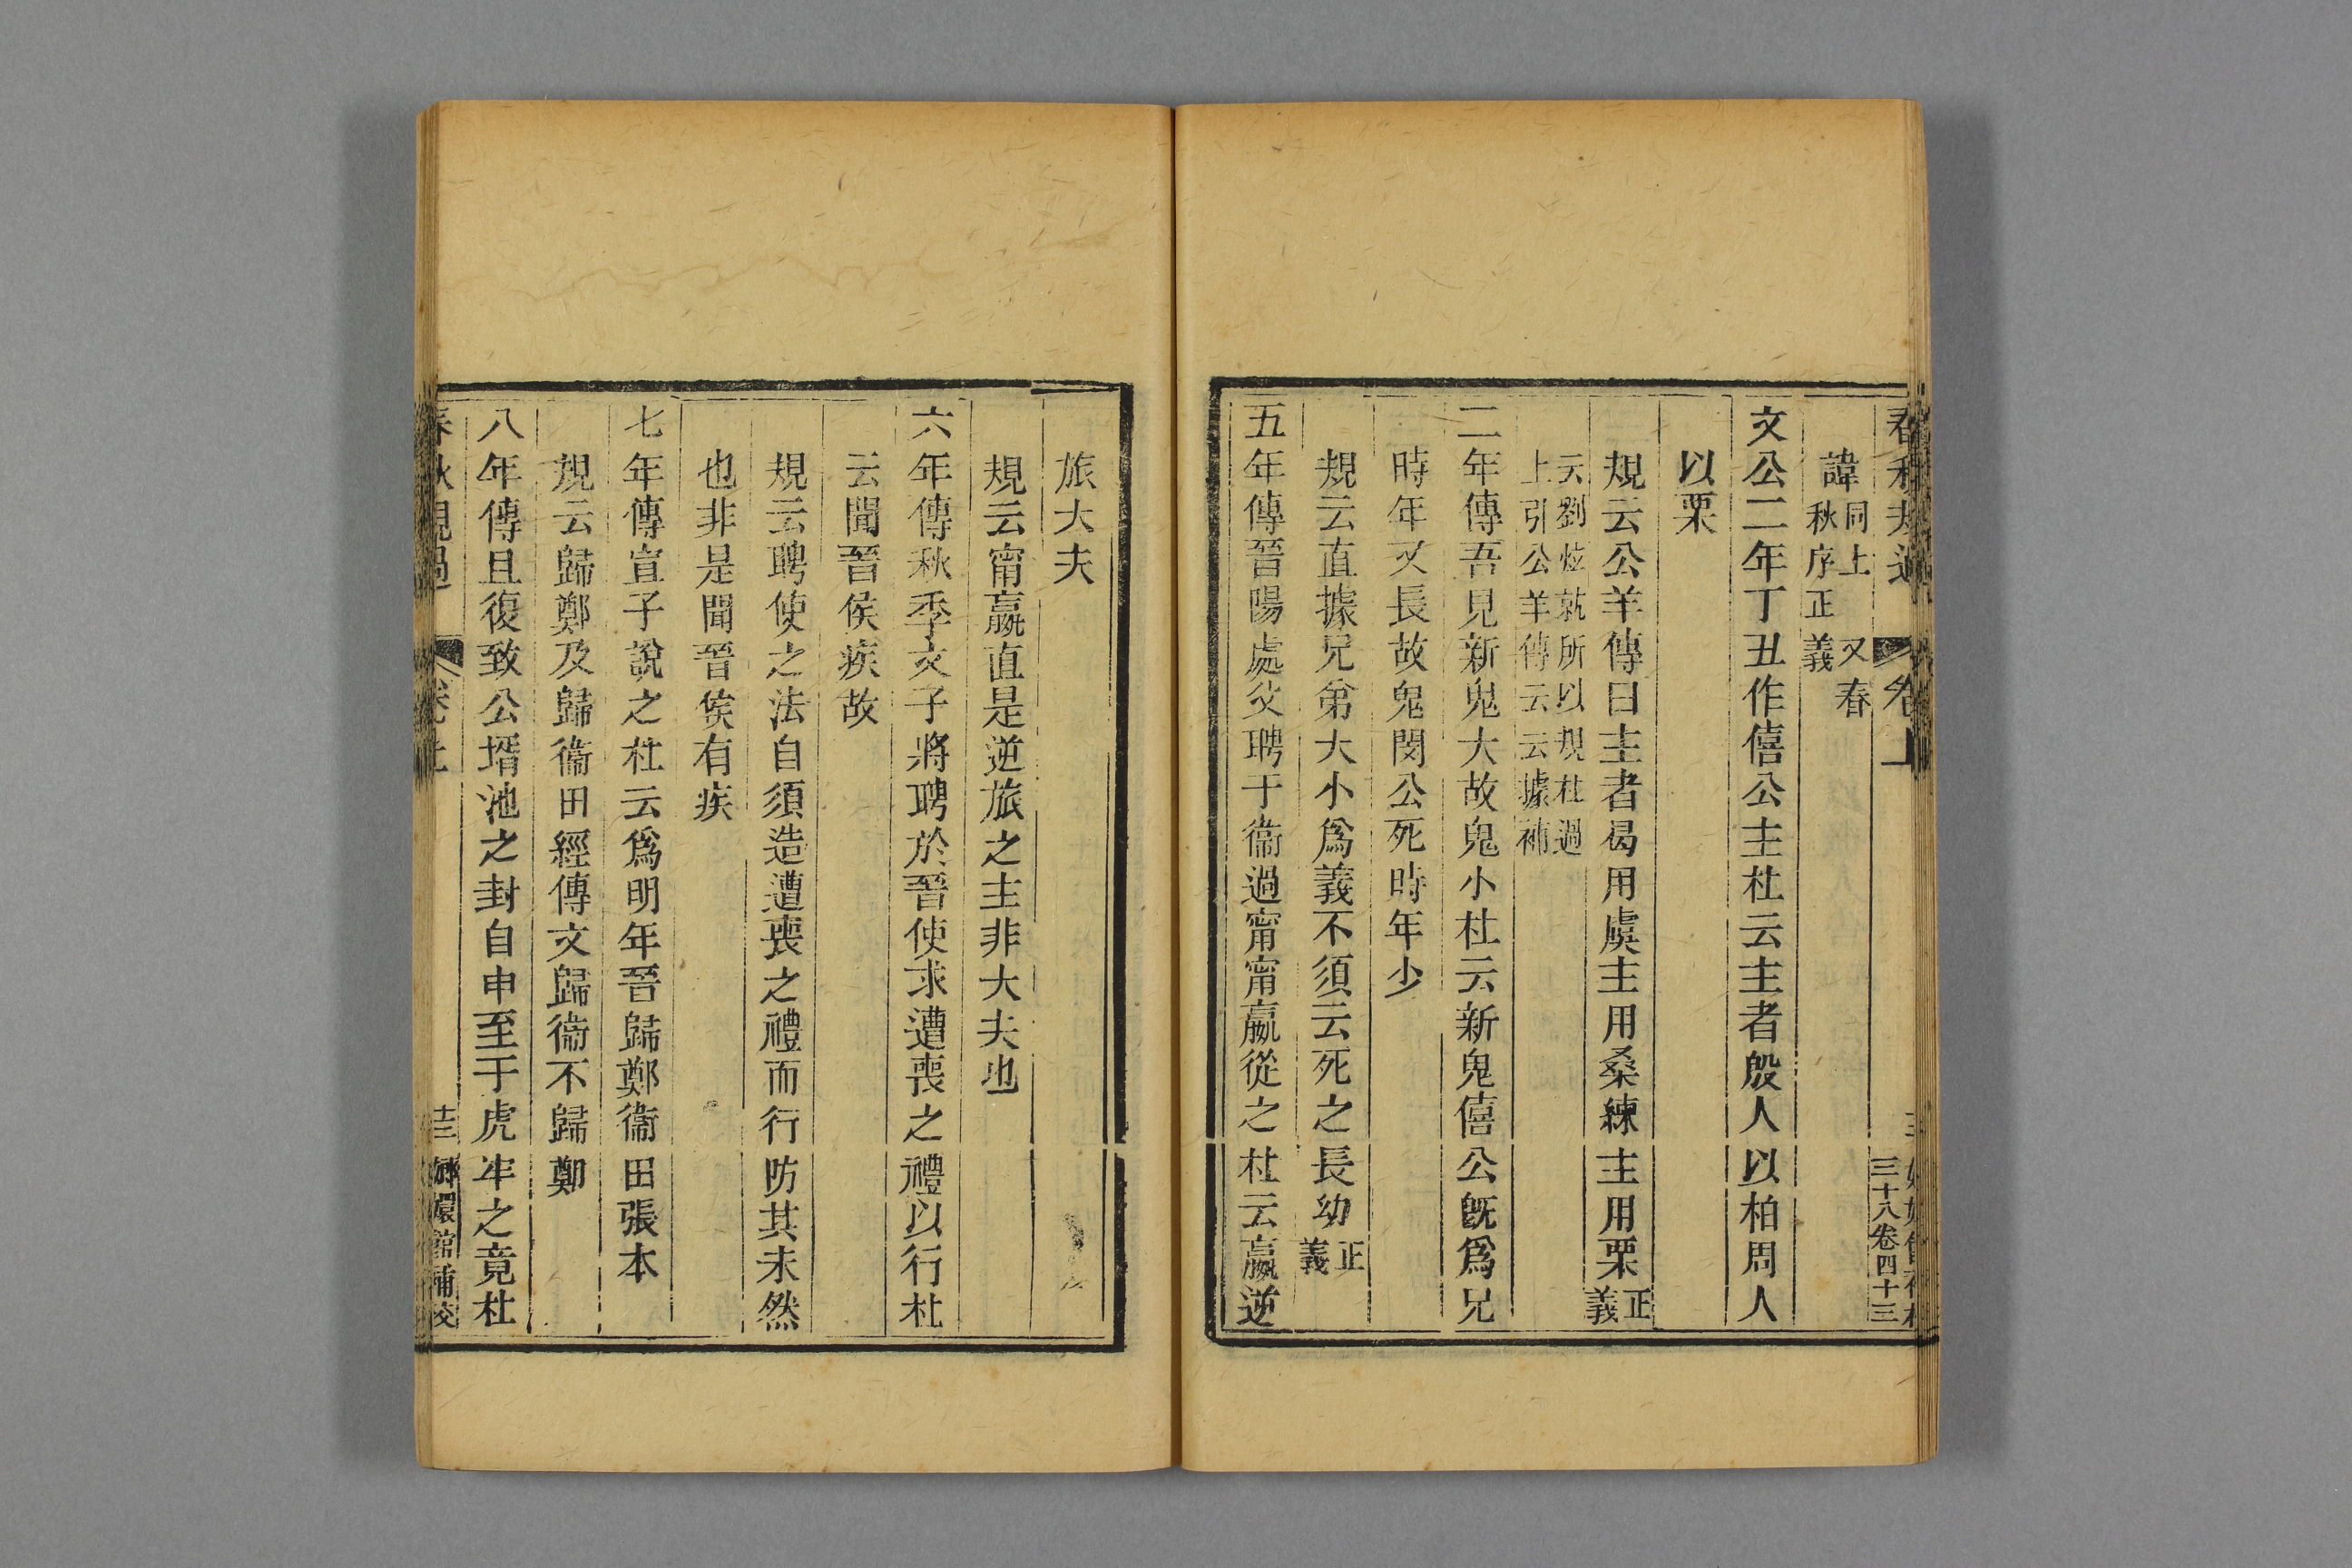 春秋規過 卷上
三十八卷四十三
諱同上 又春秋序正義
文公二年丁丑作僖公主杜云主者殷人以柏周人
以栗
規云公羊傳曰主者曷用虞主用桑練主用栗正義
云劉炫就所以規杜過
上引公羊傳云云據補
二年傳吾見新鬼大故鬼小杜云新鬼僖公旣爲兄
時年又長故鬼閔公死時年少
規云直據兄弟大小爲義不須云死之長幼正義
五年傳晉陽處父聘于衞過甯甯嬴從之杜云嬴逆
旅大夫
規云甯嬴直是逆旅之主非大夫也
六年傳秋季文子將聘於晉使求遭喪之禮以行杜
云聞晉侯疾故
規云聘使之法自須造遭喪之禮而行防其未然
也非是聞晉侯有疾
七年傳宣子說之杜云爲明年晉歸鄭衞田張本
規云歸鄭及歸衞田經傳文歸衞不歸鄭
八年傳且復致公壻池之封自申至于虎牢之竟杜
春秋規過 卷上 十三 嫏嬛館補校